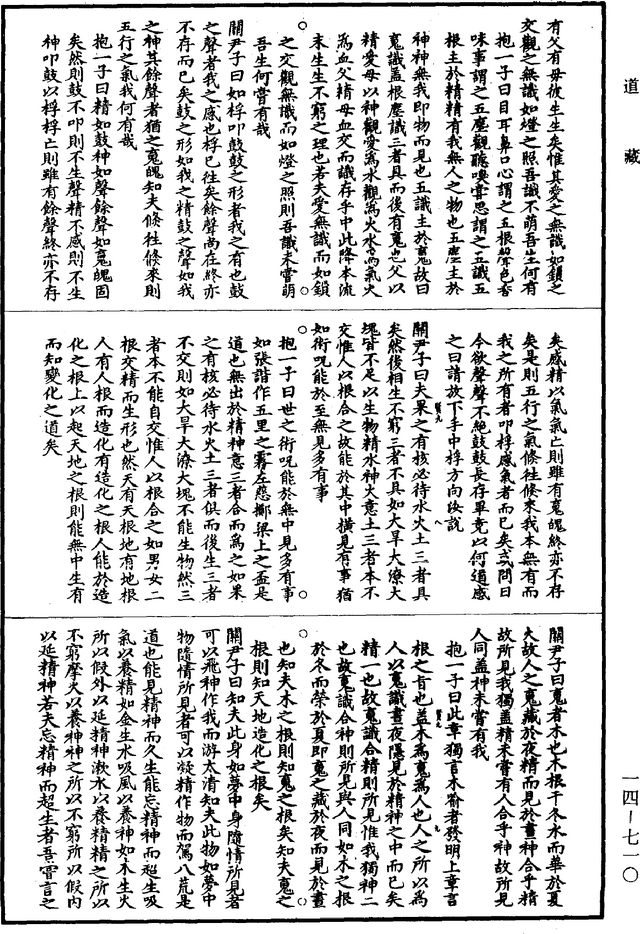 道藏
有父有母彼生生矣惟其愛之無識如鎖之
交觀之無識如燈之照吾識不萌吾生何有
抱一子曰目耳鼻口心謂之五根聲色香
味事謂之五塵觀聽嗅嘗思謂之五識五
根主於精精有我無人之物也五塵主於
神神無我即物而見也五識主於䰟故曰
䰟識蓋根塵識三者具而後有䰟也父以
精愛母以神觀愛爲水觀爲火水爲氣火
爲血父精母血交而識存乎中此降本流
末生生不窮之理也若夫愛無識而如鎖
之交觀無識而如燈之照則吾識未嘗萌
吾生何嘗有哉
關尹子曰如桴叩鼓鼓之形者我之有也鼓
之聲者我之感也桴已往矣餘聲尚在終亦
不存而已矣鼓之形如我之精鼓之聲如我
之神其餘聲者猶之䰟魄知夫倏往倏來則
五行之氣我何有哉
抱一子曰精如鼓神如聲餘聲如䰟魄固
矣然則鼓不叩則不生聲精不感則不生
神叩鼓以桴桴亡則雖有餘聲終亦不存
矣感精以氣氣亡則雖有䰟魄終亦不存
矣是則五行之氣倏往倏來我本無有而
我之所有者叩桴感氣者而已矣或問曰
今欲聲聲不絕鼓鼓長存畢竟以何道感
之曰請放下手中桴方向汝說
關尹子曰夫果之有核必待水火土三者具
矣然後相生不窮三者不具如大旱大潦大
塊皆不足以生物精水神火意土三者本不
交惟人以根合之故能於其中橫見有事猶
如術呪能於至無見多有事
抱一子曰世之術呪能於無中見多有事
如張諧作五里之霧左慈擲梁上之盃是
道也無出於精神意三者合而爲之如果
之有核必待水火土三者俱而後生三者
不交則如大旱大潦大塊不能生物然三
者本不能自交惟人以根合之如男女二
根交精而生形也然天有天根地有地根
人有人根而造化有造化之根人能於造
化之根上以起天地之根則能無中生有
而知變化之道矣
關尹子曰䰟者木也木根于冬水而華於夏
火故人之䰟藏於夜精而見於晝神合乎精
故所見我獨蓋精未嘗有人合乎神故所見
人同蓋神未嘗有我
抱一子曰此章獨言木喻者發明上章言
根之旨也蓋木爲䰟爲人也人之所以爲
人以䰟識晝夜隱見於精神之中而已矣
精一也故䰟識合精則所見惟我獨神二
也故䰟識合神則所見與人同如木之根
於冬而榮於夏即䰟之藏於夜而見於晝
也知夫木之根則知䰟之根矣知夫䰟之
根則知天地造化之根矣
關尹子曰知夫此身如夢中身隨情所見者
可以飛神作我而游太清知夫此物如夢中
物隨情所見者可以凝精作物而駕八荒是
道也能見精神而久生能忘精神而超生吸
氣以養精如金生水吸風以養神如木生火
所以假外以延精神漱水以養精精之所以
不窮摩火以養神神之所以不窮所以假內
以延精神若夫忘精神而超生者吾嘗言之
一四－七一〇